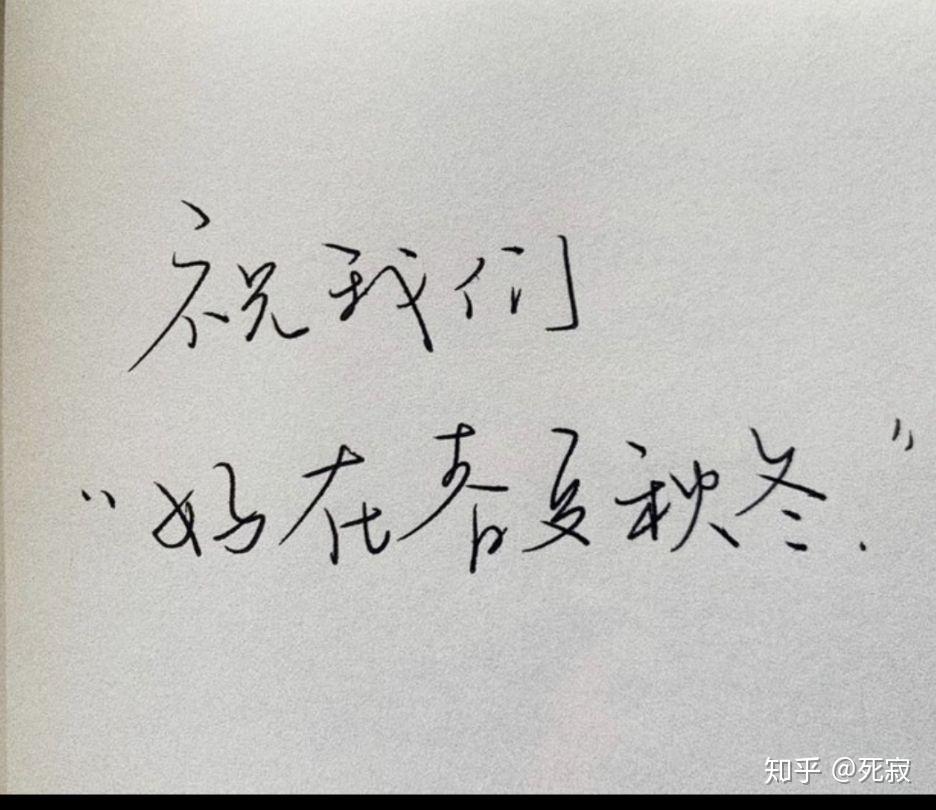 祝我们
“好在春夏秋冬.”
知乎 @死寂